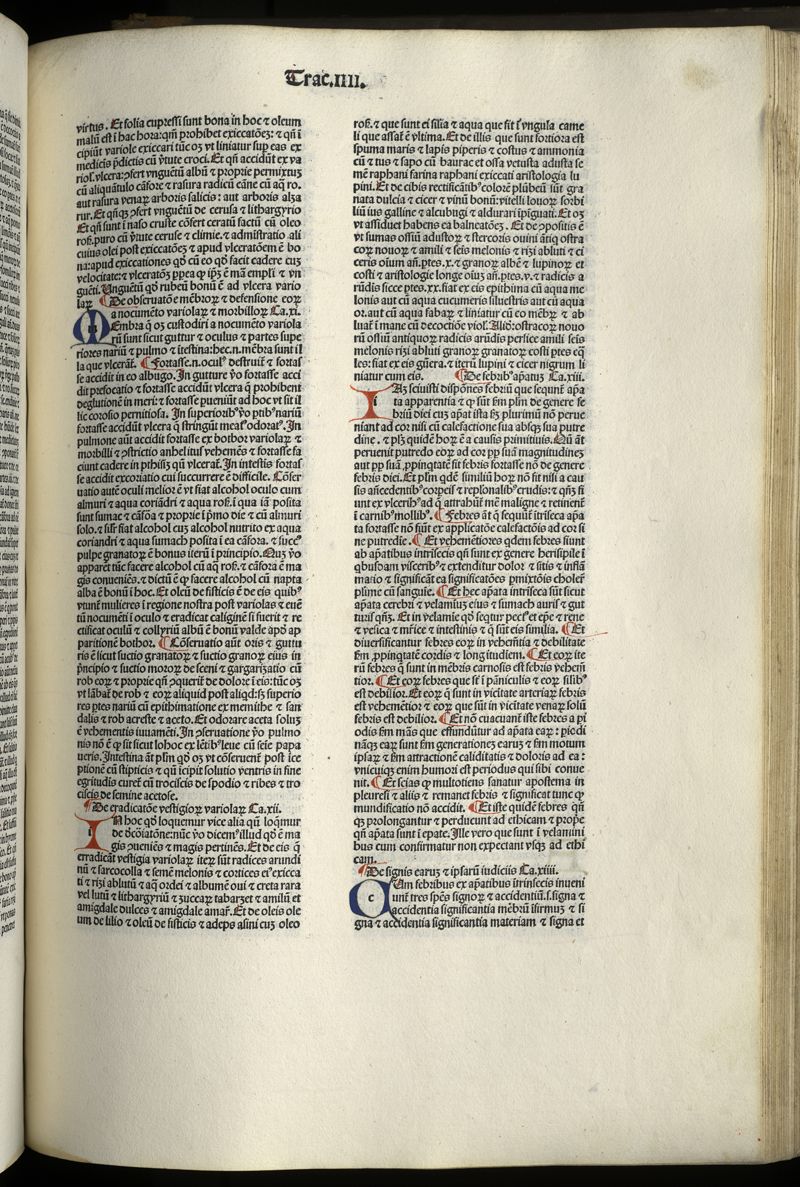 Trac.IIII.
virtus. Et folia cupressi sunt bona in hoc ⁊ oleum
malū est ī hac hora: qm̄ prohibet exiccatōeȝ: ⁊ qn̄ ī
cipiūt variole exiccari tūc oȝ vt liniatur sup eas ex
medicis p̄dictis cū v̓tute croci. Et qn̄ accidūt ex va
riol. vlcera: ꝯfert vnguētū albū ⁊ proprie permixtuȝ
cū aliquātulo cāfore ⁊ rasura radicū cāne cū aq̄ ro.
aut rasura venaꝝ arboris salicis: aut arboris alza
rur. Et qn̄qȝ ꝯfert vnguētū de cerusa ⁊ lithargyrio
Et qn̄ sunt ī naso cruste cōfert ceratū factū cū oleo
ros. puro cū v̓tute ceruse ⁊ climie. ⁊ admistratio ali
cuius olei post exiccatōeȝ ⁊ apud vlceratōem ē bo
na: apud exiccationes qd̄ cū eo qd̄ facit cadere cuȝ
velocitate: ⁊ vlceratōȝ ꝓpea ꝙ ip̄ȝ ē mā empli ⁊ vn
guēti. Unguētū qd̄ rubeū bonū ē ad vlcera vario
laꝝ ¶ De obseruatōe mēbroꝝ ⁊ defensione eoꝝ
a nocumēto variolaꝝ ⁊ morbilloꝝ Ca.xi.
Membra q̄ oȝ custodiri a nocumēto variola
rū sunt sicut guttur ⁊ oculus ⁊ partes supe
riores nariū ⁊ pulmo ⁊ ītestina: hec.n.mēbra sunt il
la que vlcerāt. ¶ Fortasse.n.ocul⁹ destruit̄ ⁊ fortas
se accidit in eo albugo. In gutture v̓o fortasse acci
dit prefocatio ⁊ fortasse accidūt vlcera q̄ prohibent
deglutionē in meri: ⁊ fortasse pueniūt ad hoc vt sit il
lic corosio pernitiosa. In superiorib⁹ v̓o ptib⁹ nariū
fortasse accidūt vlcera q̄ stringūt meat⁹ odorat⁹. In
pulmone aūt accidit fortasse ex bothor variolaꝝ ⁊
morbilli ⁊ ꝯstrictio anhelitus vehemēs ⁊ fortasse fa
ciunt cadere in pthisiȝ qn̄ vlcerāt. In intestis fortas
se accidit excoriatio cui succurrere ē difficile. Cōser
uatio autē oculi melior ē vt fiat alcohol oculo cum
almuri ⁊ aqua coriādri ⁊ aqua ros. ī qua iā posita
sunt sumac ⁊ cāfora ⁊ proprie ī pmo die ⁊ cū almuri
solo. ⁊ silr̄ fiat alcohol cuȝ alcohol nutrito ex aqua
coriandri ⁊ aqua sumach posita ī ea cāfora. ⁊ succ⁹
pulpe granatoꝝ ē bonus iterū ī principio. Qn̄ȝ v̓o
apparēt tūc facere alcohol cū aq̄ ros. ⁊ cāfora ē ma
gis conueniēs. ⁊ dictū ē ꝙ facere alcohol cū napta
alba ē bonū ī hoc. Et oleū de fisticis ē de eis quib⁹
vtunt̄ mulieres ī regione nostra post variolas ⁊ euē
tū nocumēti ī oculo ⁊ eradicat caliginē si fuerit ⁊ re
ctificat oculū ⁊ collyriū albū ē bonū valde apd̄ ap
paritionē bothor. ¶ Cōseruatio aūt oris ⁊ guttu
ris ē licut suctio granatoꝝ ⁊ suctio granoꝝ eius in
p̄ncipio ⁊ suctio moroꝝ de sceni ⁊ gargarizatio cū
rob eoꝝ ⁊ proprie qn̄ ꝯquerit̄ de dolore ī eis: tūc oȝ
vt lābat̄ de rob ⁊ eoꝝ aliquid post aliqd̄: sȝ superio
res ptes nariū cū epithimatione ex memithe ⁊ san
dalis ⁊ rob acreste ⁊ aceto. Et odorare aceta soluȝ
ē vehementis iuuamēti. In ꝯseruatione v̓o pulmo
nis nō ē ꝙ sit sicut lohoc ex lētib⁹ leue cū seīe papa
ueris. Intestina aūt plm̄ qd̄ oȝ vt cōseruent̄ post īce
ptionē cū stipticis ⁊ qn̄ īcipit solutio ventris in fine
egritudis curet̄ cū trociscis de spodio ⁊ ribes ⁊ tro
ciscis de semine acetose.
¶ De eradicatōe vestigioꝝ variolaꝝ Ca.xii.
In hoc qd̄ loquemur vice alia qn̄ loqm̄ur
de decōratōne: nūc v̓o dicem⁹ illud qd̄ ē ma
gis ꝯueniēs ⁊ magis pertinēs. Et de eis q̄
erradicāt vestigia variolaꝝ iteꝝ sūt radices arundi
nū ⁊ sarcocolla ⁊ semē melonis ⁊ cortices ei⁹ exicca
ti ⁊ rizi ablutū ⁊ aq̄ ordei ⁊ albumē oui ⁊ creta rara
vel lutū ⁊ lithargyriū ⁊ zuccaꝝ tabarzet ⁊ amilū et
amigdale dulces ⁊ amigdale amar̄. Et de oleis ole
um de lilio ⁊ oleū de fisticis ⁊ adeps asini cuȝ oleo
ros. ⁊ que sunt ei silia ⁊ aqua que fit ī vngula came
li que assat̄ ē vltima. Et de illis que sunt fortiora est
spuma maris ⁊ lapis piperis ⁊ costus ⁊ ammonia
cū ⁊ tus ⁊ sapo cū baurac et ossa vetusta adusta se
mē raphani farina raphani exiccati aristologia lu
pini. Et de cibis rectificātib⁹ colorē plūbeū sūt gra
nata dulcia ⁊ cicer ⁊ vinū bonū: vitelli louoꝝ sorbi
liū ius galline ⁊ alcubugi ⁊ aldurari īpīguati. Et oȝ
vt assiduet habens ea balneatōeȝ. Et de ꝯpositis ē
vt sumas ossiū adustoꝝ ⁊ stercoris ouini ātiq̄ ostra
coꝝ nouoꝝ ⁊ amili ⁊ seīs melonis ⁊ rizi abluti ⁊ ci
ceris oīum an̄.ptes.x. ⁊ granoꝝ albē ⁊ lupinoꝝ et
costi ⁊ aristologie longe oīuȝ an̄.ptes.v. ⁊ radicis a
rūdis sicce ptes.xx. fiat ex eis epithima cū aqua me
lonis aut cū aqua cucumeris siluestris aut cū aqua
or. aut cū aqua fabaꝝ ⁊ liniatur cū eo mēbꝝ ⁊ ab
luat̄ ī mane cū decoctiōe viol. Alid̄: ostracoꝝ nouo
rū ossiū antiquoꝝ radicis arūdis persice amili seīs
melonis rizi abluti granoꝝ granatoꝝ costi ptes eq̄
les: fiat ex eis gn̄era. ⁊ iterū lupini ⁊ cicer nigrum li
niatur cum eis. ¶ De febrib⁹ ap̄atuȝ Ca.xiii.
Iaȝ sciuisti dispōnes febriū que sequunt̄ apa
ta apparentia ⁊ ꝙ sūt fm plm̄ de genere fe
briū diei cuȝ apat̄ ista sȝ plurimū nō perue
niant ad cor nisi cū calefactione sua absqȝ sua putre
dine. ⁊ plȝ quidē hoꝝ ē a causis primitiuis. Qn̄ āt
peruenit putredo eoꝝ ad cor ꝓp suā magnitudineȝ
aut ꝓp suā ꝓpinqtatē fit febris fortasse nō de genere
febris diei. Et plm̄ qdē similiū hoꝝ nō fit nisi a cau
sis an̄cedentib⁹ corpeis ⁊ repl̄onalib⁹ crudis: ⁊ qn̄ȝ fi
unt ex vlcerib⁹ ad q̄ attrahūt̄ mē maligne ⁊ retinent̄
ī carnib⁹ mollib⁹. ¶ Febres āt q̄ sequūt̄ ītriseca apa
ta fortasse nō fiūt ex applicatōe calefactōis ad cor si
ne putredie. ¶ Et vehemētiores qdem febres siunt
ab apatibus intrisecis qn̄ sunt ex genere herisipile ī
qbusdam visceꝝib⁹ ⁊ extenditur dolor ⁊ sitis ⁊ inflā
matio ⁊ significāt ea significatōes pmixtōis choleꝝ
plime cū sanguīe. ¶ Et hec apata intriseca sūt sicut
apata cerebri ⁊ velamiuȝ eius ⁊ sumach auris ⁊ gut
turis qn̄ȝ. Et in velamīe qd̄ seqtur pect⁹ et epe̅ ⁊ rene
⁊ vesica ⁊ mr̄ice ⁊ intestinis ⁊ q̄ sūt eis similia. ¶ Et
diuersificantur febres eorum in vehemētia ⁊ debilitate
fm ꝓpinqtatē cordis ⁊ longitudinem. ¶ Et eoꝝ ite
rū febres q̄ sunt in mēbris carnosis est febris vehemē
tior. ¶ Et eoꝝ febres que st̄ ī pāniculis ⁊ eoꝝ silib⁹
est debilior. Et eoꝝ q̄ sunt in vicītate arteriaꝝ febris
est vehemētior ⁊ eoꝝ que sūt in vicītate venaꝝ solū
febris est debilior. ¶ Et nō euacuant̄ iste febres a pi
odis fm mās que effundūtur ad apata eaꝝ: piodi
nāqȝ eaꝝ sunt fm generationeȝ earuȝ ⁊ fm motum
ipsaꝝ ⁊ fm attractionem caliditatis ⁊ doloris ad ea:
vnicuiqȝ enim humori est periodus qui sibi conue
nit. ¶ Et scias ꝙ multotiens sanatur apostema in
pleuresi ⁊ aliis ⁊ remanet febris ⁊ significat tunc ꝙ
mundificatio nō accidit. ¶ Et iste quidē febres qn̄
qȝ prolongantur ⁊ perducunt ad ethicam ⁊ prop̄e
qn̄ apata sunt ī epate. Ille vero que sunt ī velamini
bus eum confirmatur non expectant vsqȝ ad ethi
cam.
¶ De signis earuȝ ⁊ ipsarū iudiciis Ca.xiiii.
Cum febribus ex apatibus itrinsecis inueni
unt̄ tres sp̄es signoꝝ ⁊ accidentiū.s. signa ⁊
accidentia significantia mēbrū īfirmuȝ ⁊ si
gna ⁊ accidentia significantia materiam ⁊ signa et